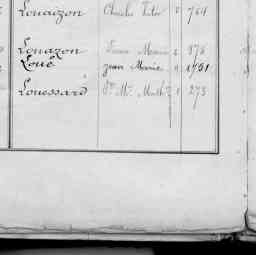 Louaizon Charles Victor 2 764
Louazon Marie 2 876
Loué Jean Marie 2 1761
Louessard Mie Math 1 273